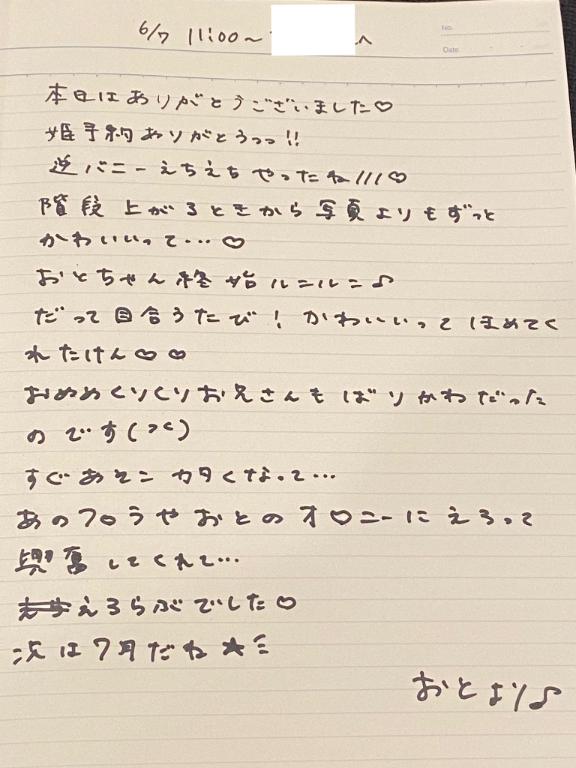 No.
Date
6/7 11:00〜 へ
本日はありがとうございました♡
姫予約ありがとうっっ!!
逆バニーえちえちやったね///♡
階段上がるときから写真よりもずっと
かわいいって…♡
おとちゃん終始ルンルン♪
だって目合うたび!かわいいってほめてく
れたけん♡♡
おめめくりくりお兄さんもばりかわだった
のです(><)
すぐあそこカタくなって…
あのフ○ラやおとのオ○ニーにえろって
興奮してくれて…
えろらぶでした♡
次は7月だね★ミ
おとより♪